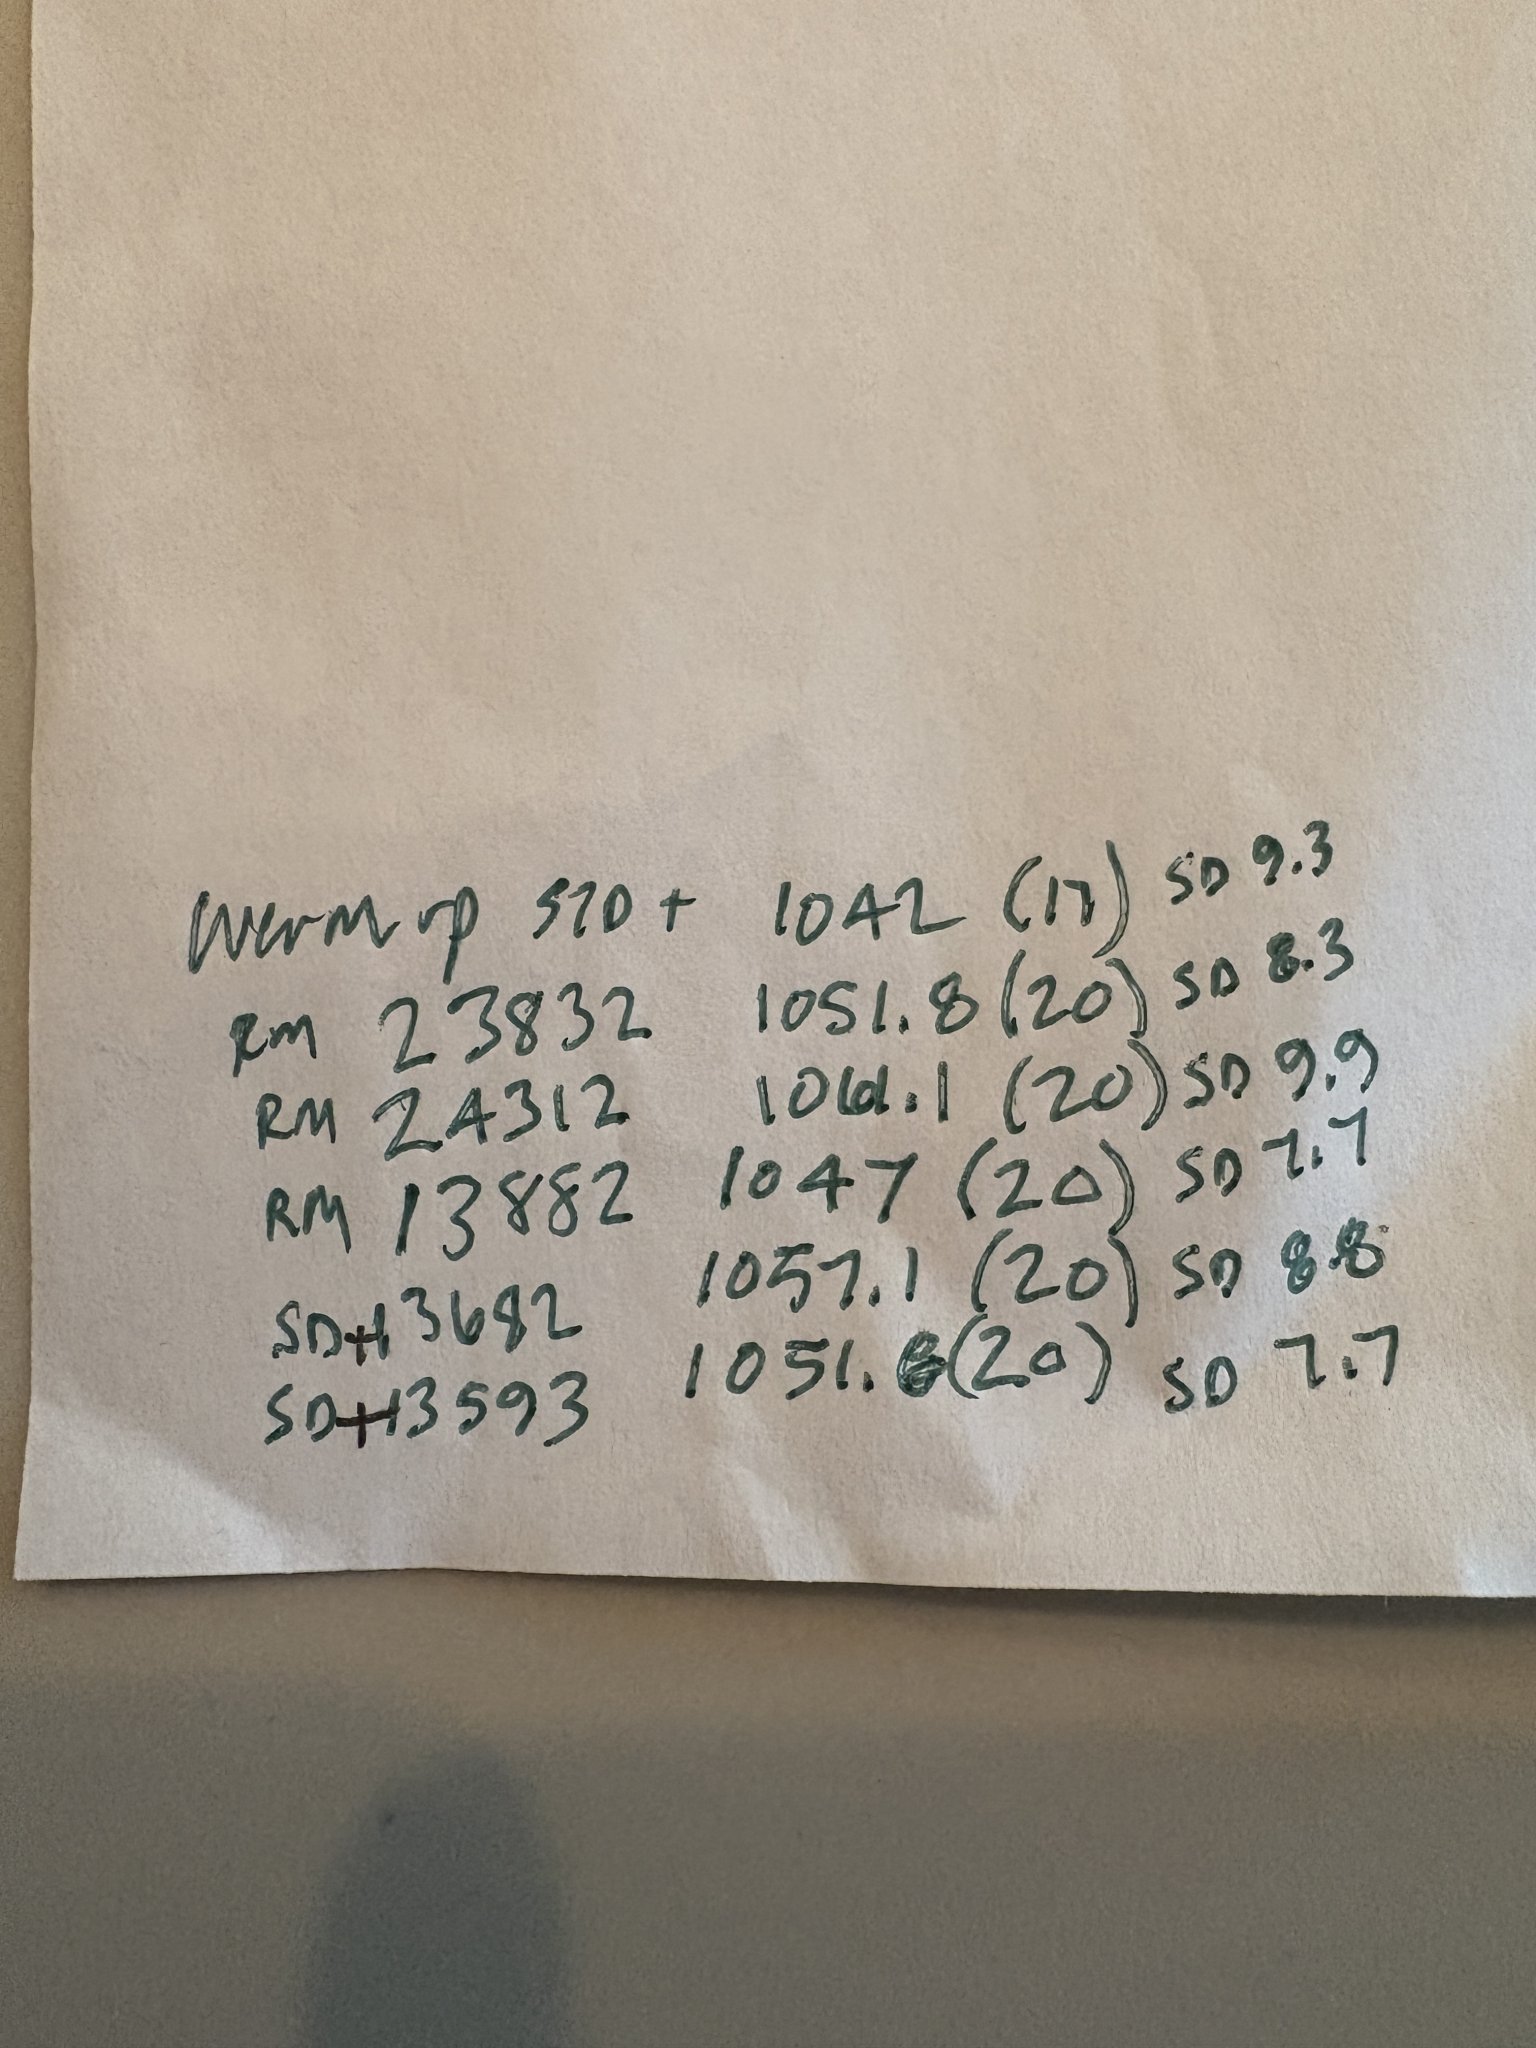 Warm up STD + 1042 (17) SD 9.3
RM 23832 1051.8 (20) SD 8.3
RM 24312 1061.1 (20) SD 9.9
RM 13882 1047 (20) SD 7.7
SD+13682 1057.1 (20) SD 8.8
SD+13593 1051. (20) SD 7.7